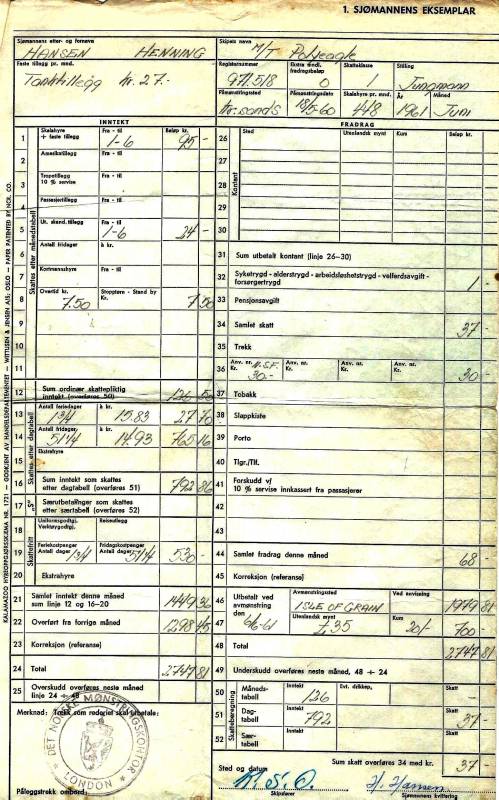 1. SJØMANNENS EKSEMPLAR
Sjømannens etter- og fornavn
HANSEN HENNING
Skipets navn
M/T Polyeagle
Faste tillegg pr. mnd.
Tanktillegg kr. 27.-
Registernummer
Ekstra mindl. fradragsbeløp
0
Skatteklasse
1
Stilling
Jungmann
Påmønstringssted
Kr.sands
Påmønstringsdato
18/5-60
Skalahyre pr. mnd.
448
År
1961
Måned
Juni
INNTEKT
FRADRAG
1 Skalahyre + faste tillegg Fra - til 1-6 Beløp kr. 95 -
2 Amerikatillegg Fra - til
3 Tropetillegg 10 % servise Fra - til
4 Passasjertillegg Fra - til
5 Ut. skand. tillegg Fra - til 1-6 24 -
6 Antall fridager à kr.
7 Kortmannshyre Fra - til
8 Overtid kr. 7.50 Stopptørn - Stand by Kr. 7 50
9
10
11
12 Sum ordinær skattepliktig inntekt (overføres 50) 126 50
13 Antall feriedager 1 3/4 à kr. 15.83 27 70
14 Antall fridager 51 1/4 à kr. 14.93 765 16
15 Ekstrahyre
16 Sum inntekt som skattes etter dagtabell (overføres 51) 792 86
17 Særutbetalinger som skattes etter særtabell (overføres 52)
18 Uniformsgodtgj. Verktøygodtgj. Reiseutlegg
19 Feriekostpenger Antall dager 1 3/4 Fridagskostpenger Antall dager 51 1/4 530 -
20 Ekstrahyre
21 Samlet inntekt denne måned sum linje 12 og 16-20 1449 36
22 Overført fra forrige måned 1298 45
23 Korreksjon (referanse)
24 Total 2747 81
25 Overskudd overføres neste måned linje 24 ÷ 48
Skattes etter månedstabell
Skattes etter dagtabell
„S”
Skattefritt
Kontant
26 Sted Utenlandsk mynt Kurs Beløp kr.
27
28
29
30
31 Sum utbetalt kontant (linje 26-30)
32 Syketrygd - alderstrygd - arbeidsløshetstrygd - velferdsavgift - forsørgertrygd 1 -
33 Pensjonsavgift
34 Samlet skatt 37 -
35 Trekk
36 Anv. nr. Kr. N.S.F. 30.- Anv. nr. Kr. Anv. nr. Kr. Anv. nr. Kr. 30 -
37 Tobakk
38 Sloppkiste
39 Porto
40 Tlgr./Tlf.
41 Forskudd v/ 10 % servise innkassert fra passasjerer
42
43
44 Samlet fradrag denne måned 68 -
45 Korreksjon (referanse)
46 Utbetalt ved avmønstring den Avmønstringssted ISLE OF GRAIN Ved anvisning 1979 81
47 6/6-61 Utenlandsk mynt £35 Kurs 20/- 700 -
48 Total 2747 81
49 Underskudd overføres neste måned, 48 ÷ 24
Skatteberegning
50 Måneds-tabell Inntekt 126 Evt. ddkkøp. Skatt -
51 Dag-tabell Inntekt 792 Skatt 37 -
52 Sær-tabell Inntekt Skatt
Sum skatt overføres 34 med kr. 37 -
Merknad: Trekk som rederiet skal betale:
DET NORSKE MØNSTRINGSKONTOR
LONDON
Påleggstrekk ombord:
Sted og dato
Skipsfører
H. Hansen
Sjømannens kvittering
KALAMAZOO HYREOPPGJØRSSKJEMA NR. 1721 — GODKJENT AV HANDELSDEPARTEMENTET — WITTUSEN & JENSEN A/S, OSLO — PAPER PATENTED BY NCR. CO.